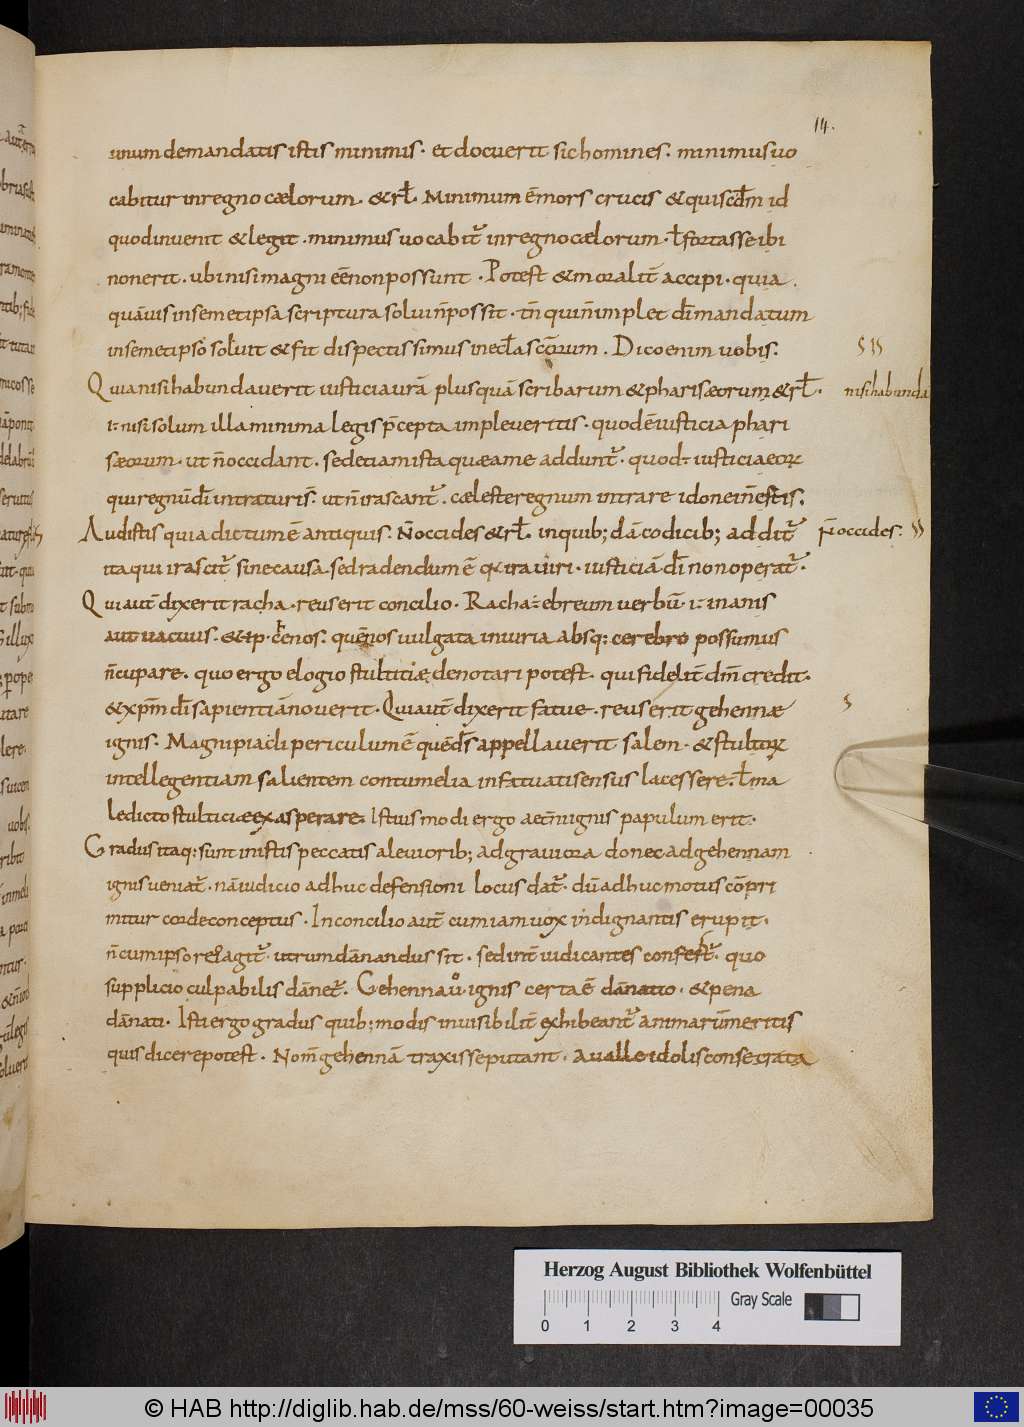 14.
unum demandatis istis minimis · et docuerit sic homines · minimus uo
cabitur in regno cælorum · & rł. Minimum ē mors crucis & quiscdm id
quod inuenit & legit · minimus uocabit̃ in regno cælorum · ł fortasse ibi
non erit · ubi nisi magni eē non possunt · Potest & moralit̄ accipi · quia
quāuis in semetipsa scriptura solui n̄ possit · tn̄ qui n̄ implet dī mandatum
in semetipso soluit & fit dispectissimus in eccła sc̄orum . Dico enim uobis.
Quia nisi habundauerit iusticia urā plus quā scribarum & pharisæorum & rł · nisi habunda
i÷ nisi solum illa minima legis p̄cepta impleueritis · quod ē iusticia phari
sæorum · ut n̄ occidant · sed etiam ista quæ a me addunt̃ · quod ÷ iusticia eoꝝ
qui regnū dī intraturi s̄ · ut n̄ irascant̃ · cæleste regnum intrare idonei n̄ estis.
Audistis quia dictum ē antiquis · N̄ occides & rł. in quib; dā codicib; addit̃ n̄ occides.
ita qui irascit̃ sine causa · sed radendum ē qꝛ ira uiri · iusticiā dī non operat̃ ·
Qui aut̄ dixerit racha · reus erit concilio · Racha ÷ ebreum uerbū · i÷ inanis
aut uacuus · & ip · cenos · quē nos uulgata iniuria absq; cerebro possumus
n̄cupare · quo ergo elogio stultitiæ denotari potest · qui fidelit̄ dm̄ credit ·
& xpm̄ dī sapientiā nouerit · Qui aut̄ dixerit fatue · reus erit gehennæ
ignis · Magni piacłi periculum ē quē ds̄ appellauerit salem · & stultoꝝ
intellegentiam salientem contumelia infatuati sensus lacessere · ł ma
ledicto stulticiæ exasperare · Istiusmodi ergo aet̄n ignis papulum erit ·
Gradus itaq; sunt in istis peccatis a leuiorib; ad grauiora donec ad gehennam
ignis ueniat̃ · nā iudicio adhuc defensioni locus dat̃ · dū adhuc motus cōpri
mitur corde conceptus · In concilio aut̄ cum iam uox indignantis erupit ·
n̄ cum ipso reo agit̃ · utrum dānandus sit · sed int̄ iudicantes confert̃ · quo
supplicio culpabilis dānet̃ · Gehenna ů · ignis certa ē dānatio · & pena
dānati · Isti ergo gradus quib; modis inuisibilit̄ exhibeant̃ animarum meritis
quis dicere potest · Nom̄ gehennā traxisse putant · a ualle idolis consecrata
Herzog August Bibliothek Wolfenbüttel
Gray Scale
0 1 2 3 4
© HAB http://diglib.hab.de/mss/60-weiss/start.htm?image=00035